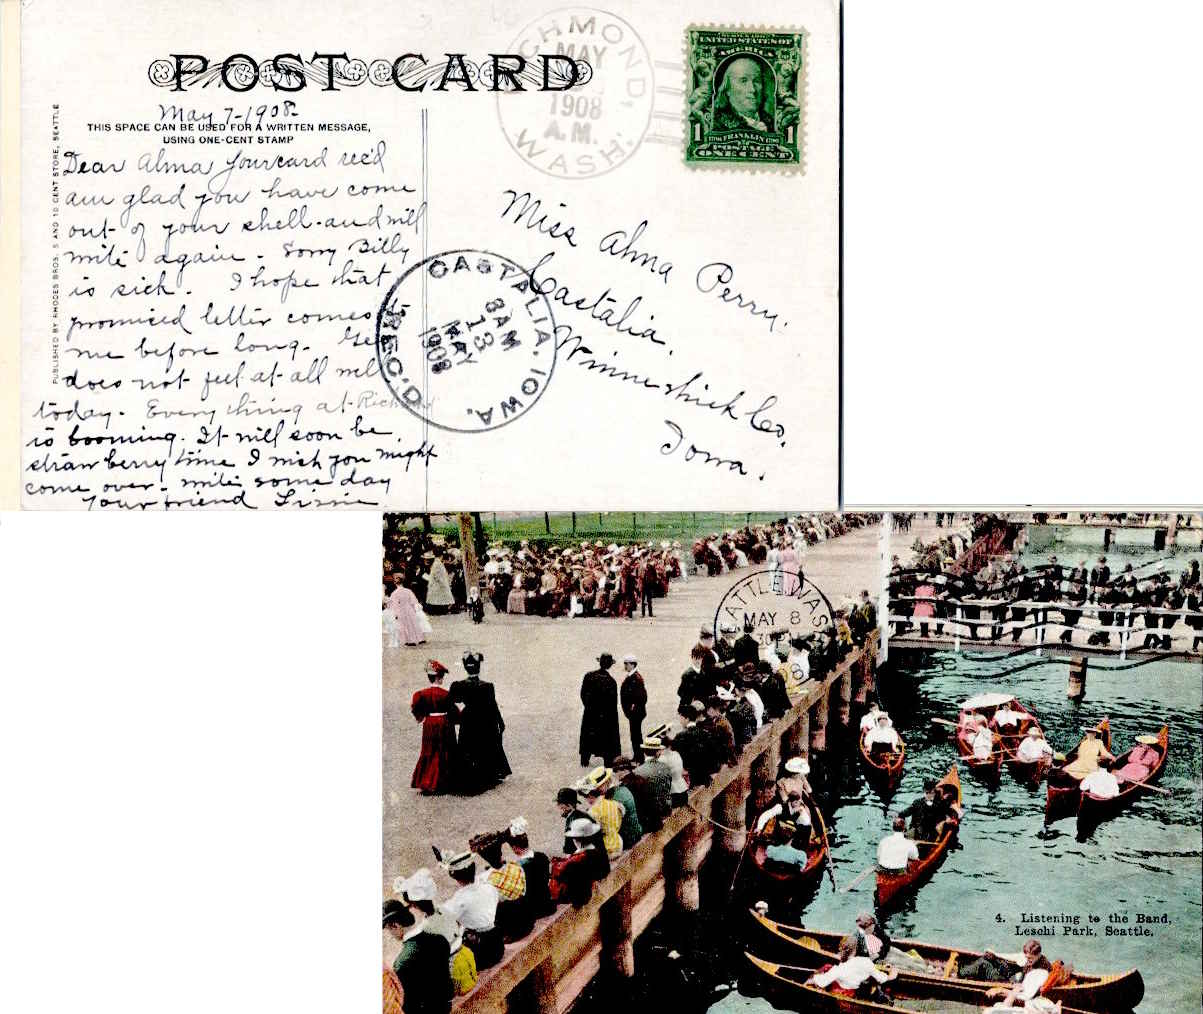 POST CARD
May 7-1908-
THIS SPACE CAN BE USED FOR A WRITTEN MESSAGE,
USING ONE-CENT STAMP
Dear Alma Your card rec'd
am glad you have come
out of your shell-and will
write again - Sorry Billy
is sick. I hope that
promised letter comes to
me before long.
does not feel at all well
today. Everything at Richmond
is booming. It will soon be
strawberry time I wish you might
come over - write some day
Your friend Lizzie
PUBLISHED BY RHODES BROS. 5 AND 10 CENT STORE, SEATTLE
RICHMOND, WASH.
MAY
1908
A.M.
SERIES 1902
UNITED STATES OF
AMERICA
1706 FRANKLIN 1790
1 POSTAGE 1
ONE CENT
Miss Alma Perry.
Castalia.
Winneshiek Co.
Iowa.
CASTALIA, IOWA. REC'D.
8 AM
13
MAY
1908
SEATTLE, WASH
MAY 8
30 P
4. Listening to the Band,
Leschi Park, Seattle.